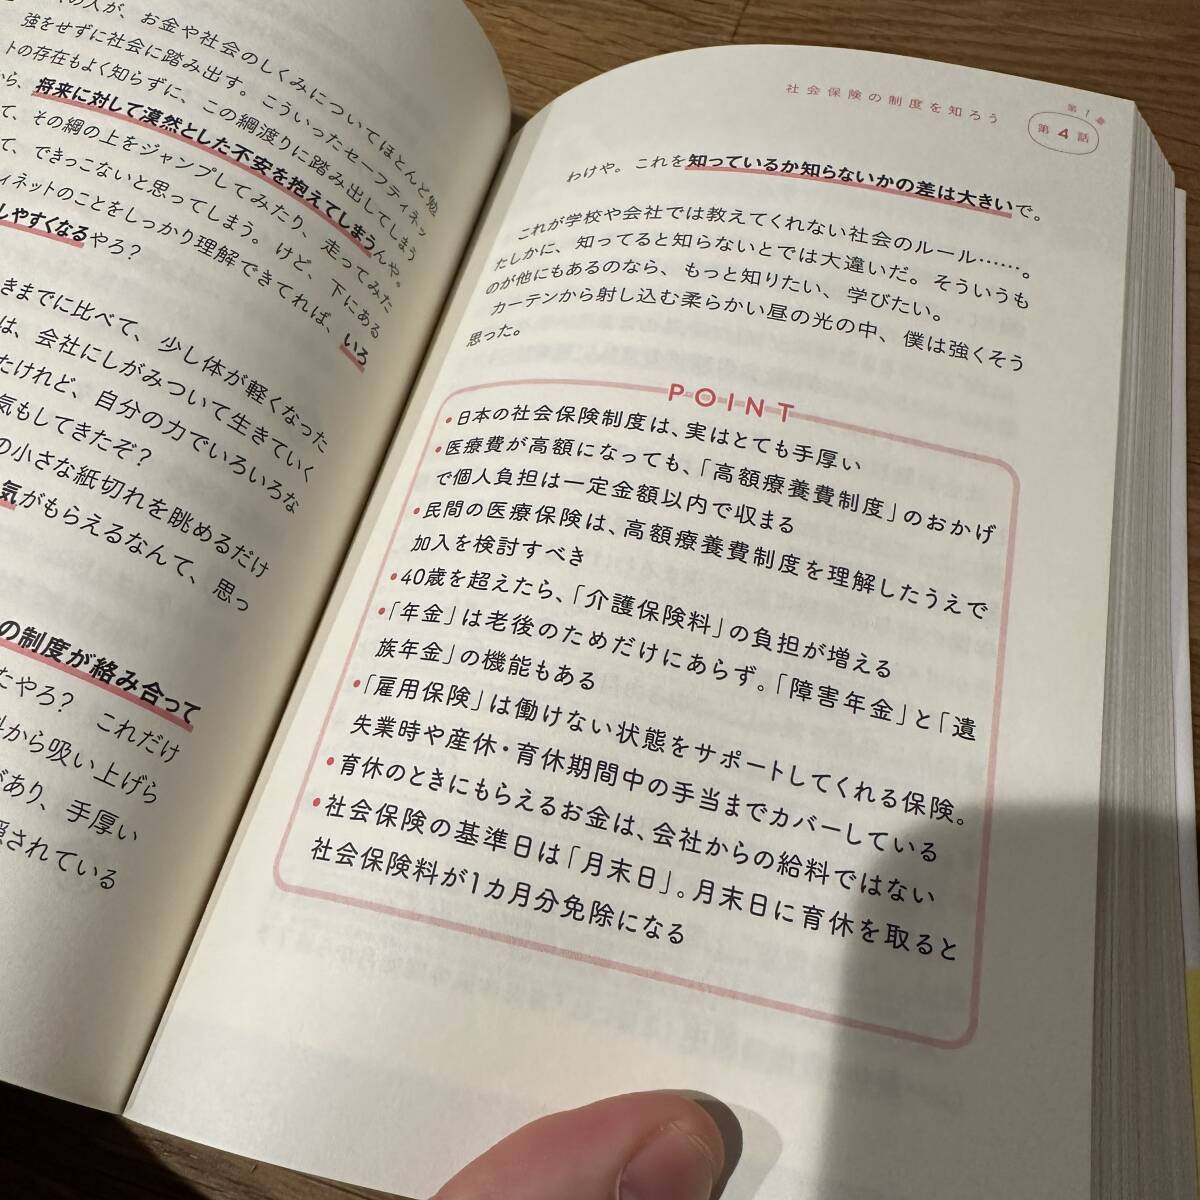 の人が、お金や社会のしくみについてほとんど勉
強をせずに社会に踏み出す。こういったセーフティネッ
トの存在もよく知らずに、この綱渡りに踏み出してしまう
から、将来に対して漠然とした不安を抱えてしまうんや。
て、その綱の上をジャンプしてみたり、走ってみた
て、できっこないと思ってしまう。けど、下にある
ィネットのことをしっかり理解できてれば、いろ
しやすくなるやろ？
きまでに比べて、少し体が軽くなった
は、会社にしがみついて生きていく
たけれど、自分の力でいろいろな
気もしてきたぞ？
の小さな紙切れを眺めるだけ
気がもらえるなんて、思っ
の制度が絡み合って
たやろ？　これだけ
から吸い上げら
があり、手厚い
隠されている
社会保険の制度を知ろう
第1章
第4話
わけや。これを知っているか知らないかの差は大きいで。
これが学校や会社では教えてくれない社会のルール……。
たしかに、知ってると知らないとでは大違いだ。そういうも
のが他にもあるのなら、もっと知りたい、学びたい。
カーテンから射し込む柔らかい昼の光の中、僕は強くそう
思った。
POINT
•日本の社会保険制度は、実はとても手厚い
•医療費が高額になっても、「高額療養費制度」のおかげ
で個人負担は一定金額以内で収まる
•民間の医療保険は、高額療養費制度を理解したうえで
加入を検討すべき
•40歳を超えたら、「介護保険料」の負担が増える
•「年金」は老後のためだけにあらず。「障害年金」と「遺
族年金」の機能もある
•「雇用保険」は働けない状態をサポートしてくれる保険。
失業時や産休・育休期間中の手当までカバーしている
•育休のときにもらえるお金は、会社からの給料ではない
•社会保険の基準日は「月末日」。月末日に育休を取ると
社会保険料が1カ月分免除になる